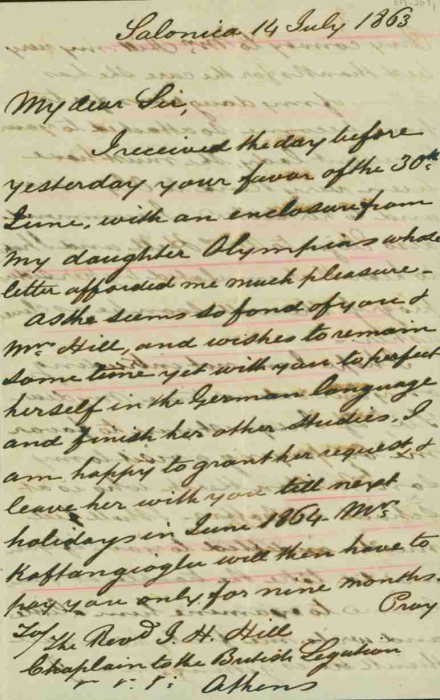 Salonica 14 July 1863
My dear Sir,
I received the day before
yesterday your favor of the 30th
June, with an enclosure from
my daughter Olympias whose
letter afforded me much pleasure -
As she seems so fond of you &
Mrs Hill, and wishes to remain
some time yet with you to perfect
herself in the German language
and finish her other studies, I
am happy to grant her request, &
leave her with you till next
holidays in June 1864. Mr
Kaftangioglu will then have to
pay you only for nine months.
Pray
To/
The Revd J. H. Hill
Chaplain to the British Legation
Athens